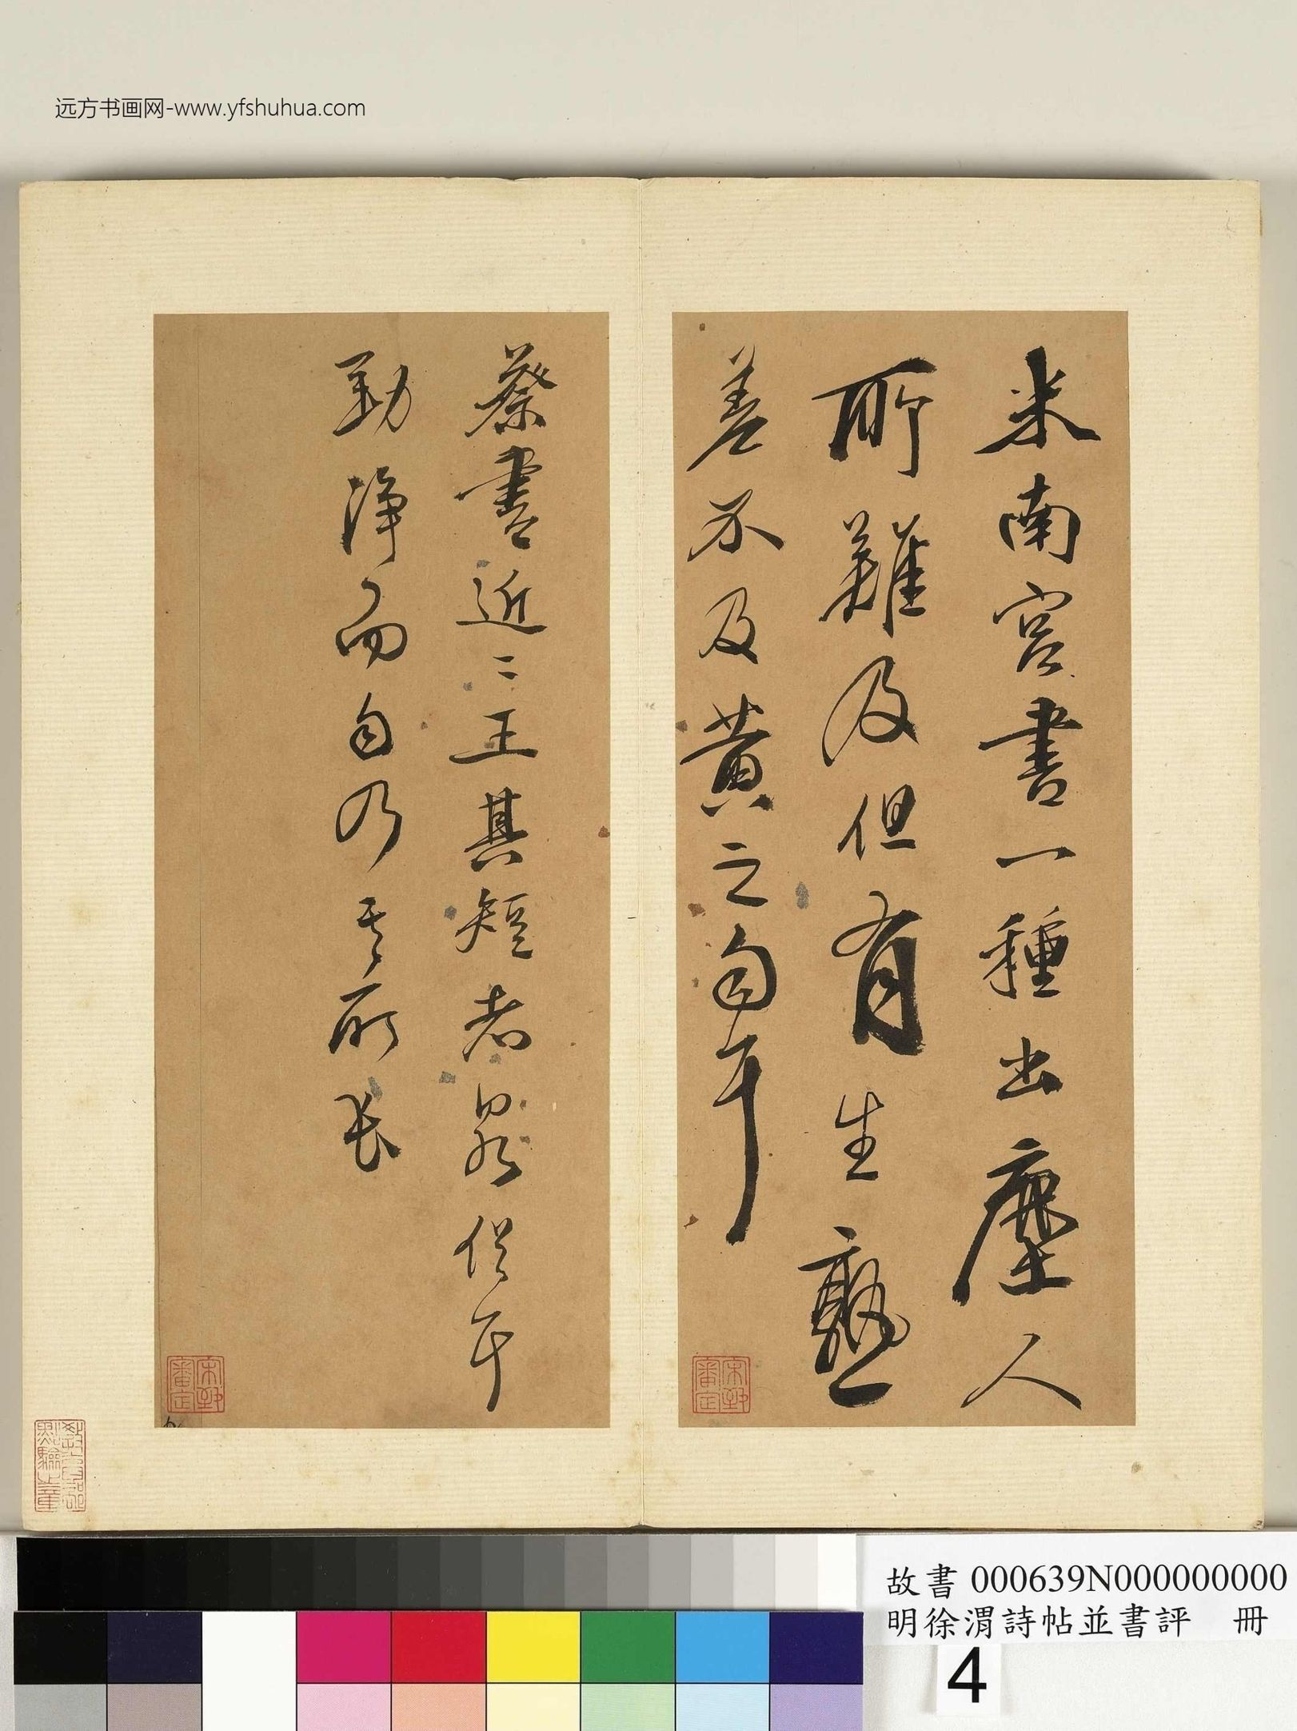 远方书画网-www.yfshuhua.com
米南宮書一種出塵人
所難及但有生熟
差不及黃之勻耳
蔡書近二王其短者畧俗耳
勁淨而勻乃其所長
故書 000639N000000000
明徐渭詩帖並書評 冊
4